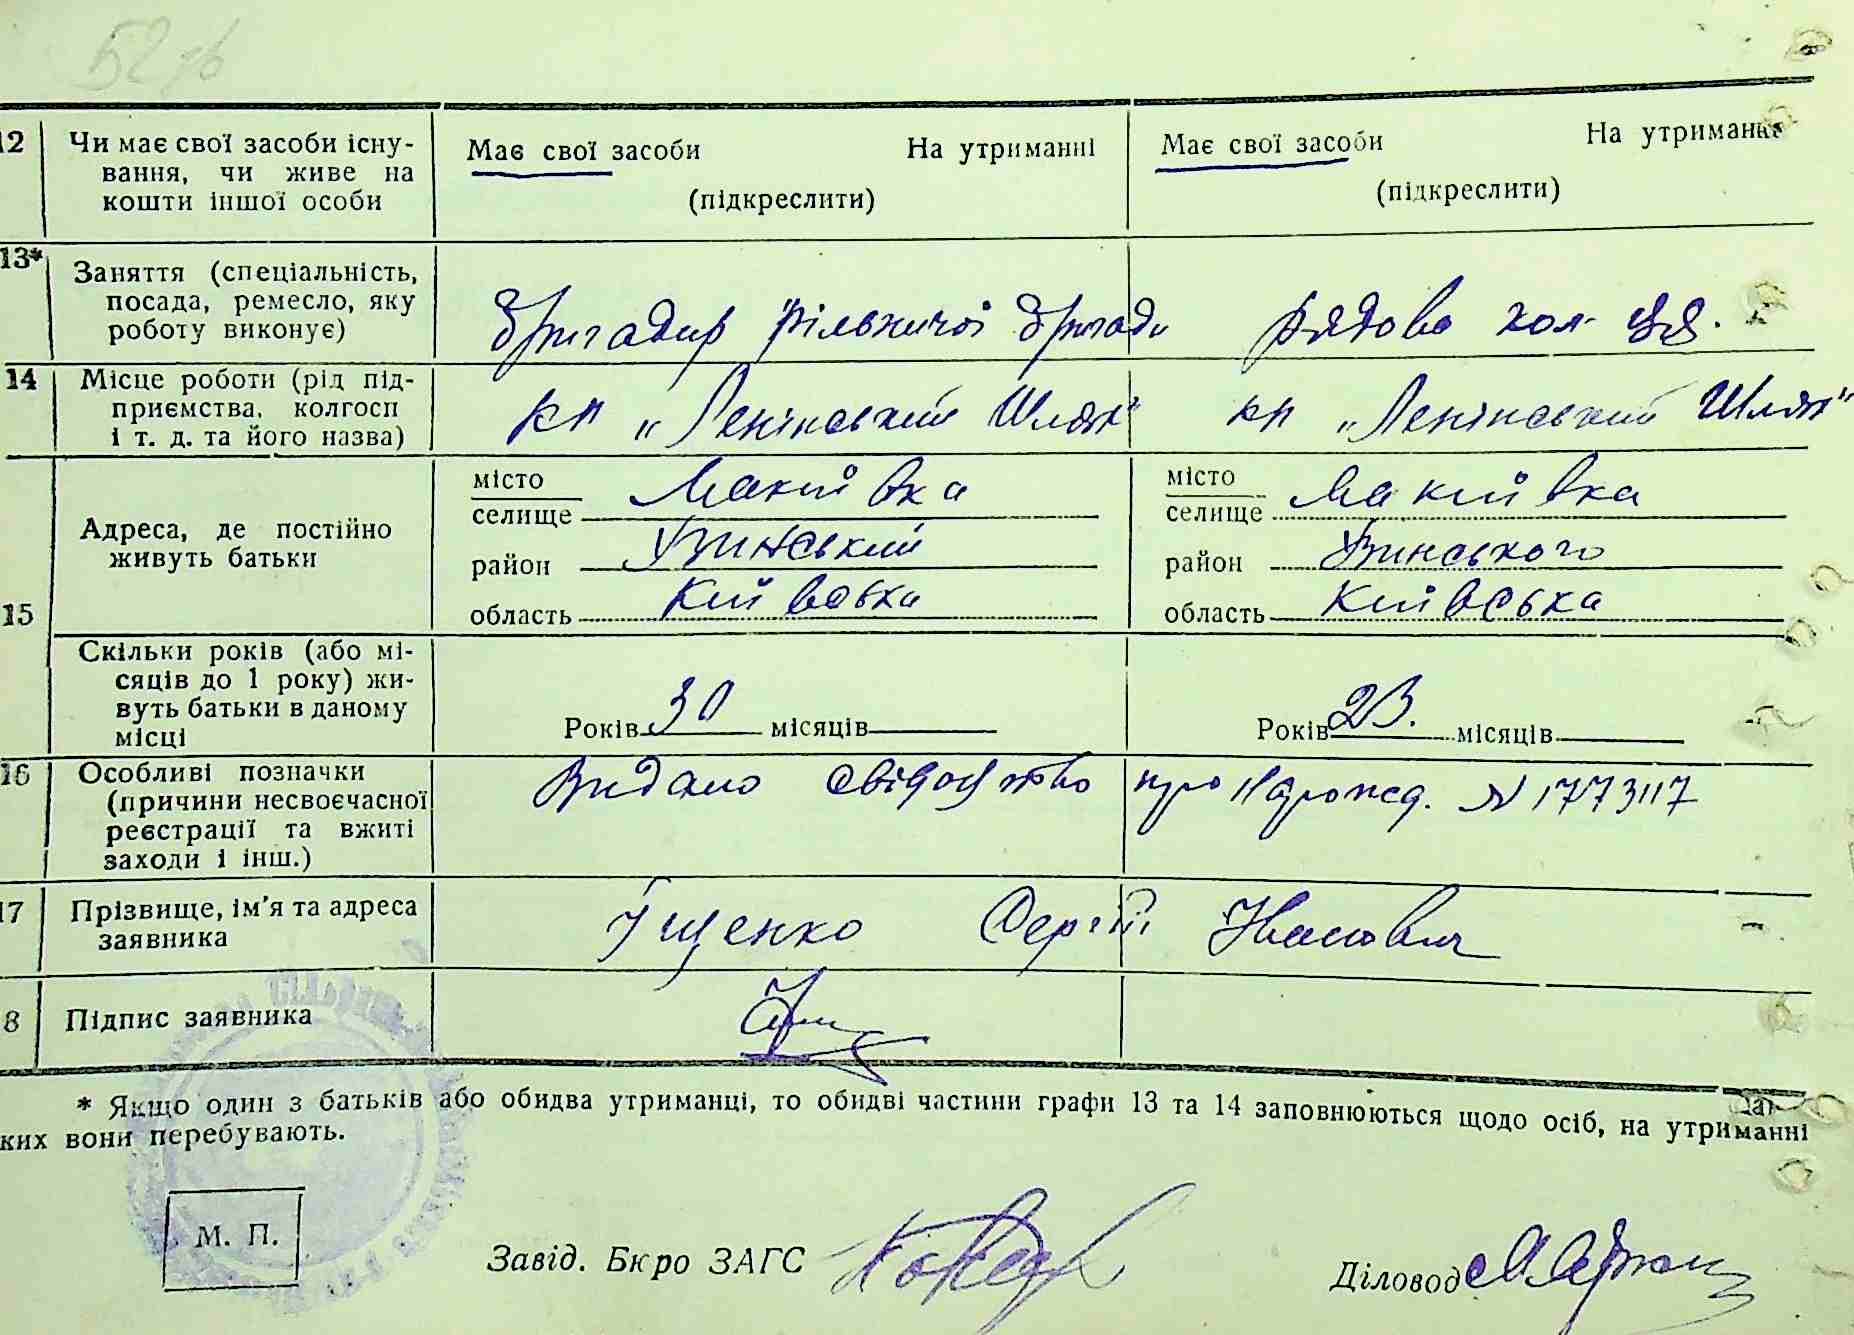 52
12 Чи має свої засоби існу-
вання, чи живе на
кошти іншої особи
Має свої засоби На утриманні
(підкреслити)
Має свої засоби На утриманні
(підкреслити)
13* Заняття (спеціальність,
посада, ремесло, яку
роботу виконує)
Бригадир рільничої бригади
Рядова кол-ця.
14 Місце роботи (рід під-
приємства, колгосп
і т. д. та його назва)
кп „Ленінський Шлях"
кп „Ленінський Шлях"
15 Адреса, де постійно
живуть батьки
місто
селище Макіївка
район Узинський
область Київська
місто
селище Макіївка
район Узинського
область Київська
Скільки років (або мі-
сяців до 1 року) жи-
вуть батьки в даному
місці
Років 30 місяців
Років 23. місяців
16 Особливі позначки
(причини несвоєчасної
реєстрації та вжиті
заходи і інш.)
Видано свідоцтво про нарожд. N 1773117
17 Прізвище, ім'я та адреса
заявника
Іщенко Сергій Иванович
8 Підпис заявника
* Якщо один з батьків або обидва утриманці, то обидві частини графи 13 та 14 заповнюються щодо осіб, на утриманні
ких вони перебувають.
М. П.
Завід. Бюро ЗАГС
Діловод